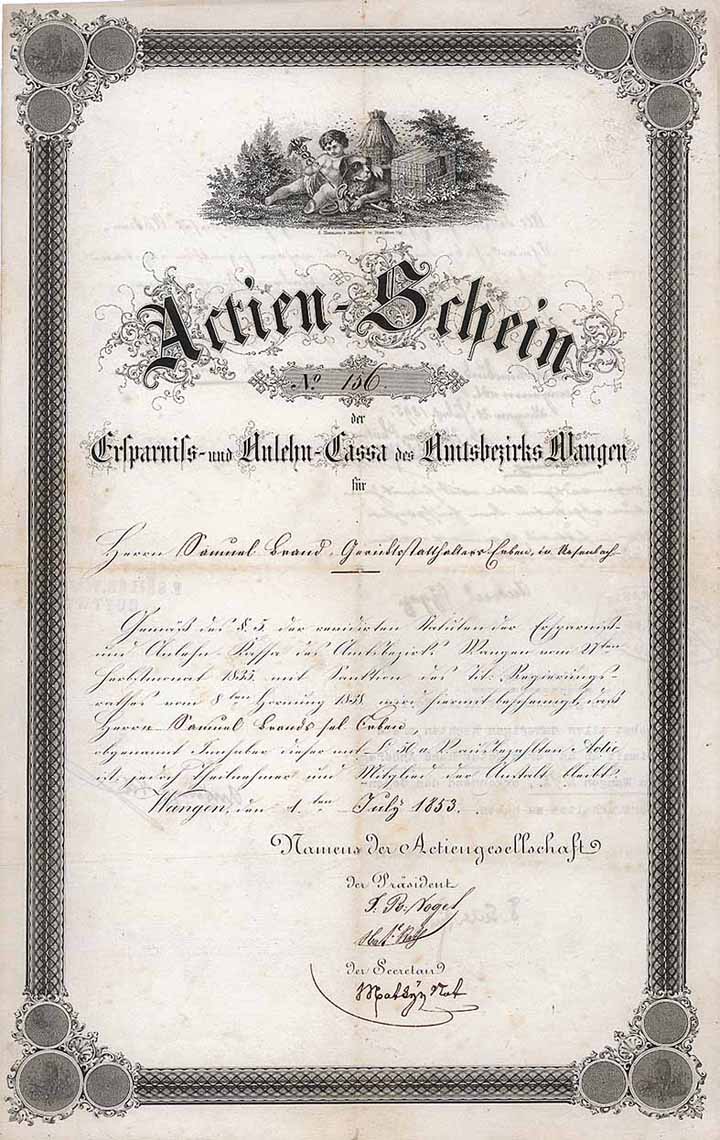 Actien-Schein
No 156.
der
Ersparniss- und Anlehn-Cassa des Amtsbezirks Wangen
für
Herrn Samuel Brand, Gerichtsstatthalters Erben, in Ursenbach
Gemäß des §. 5. der revidirten Statuten der Ersparniß-
und Anlehn-Kassa des Amtsbezirks Wangen vom 27ten
Herbstmonat 1835. mit Sanktion des Regierungs-
rathes vom 8ten Hornung 1838. wird hiermit bescheinigt, daß
Herrn Samuel Brands sel. Erben,
obgenannt Inhaber dieser mit bezahlten Actie
ist, jedoch Theilnehmer und Mitglied der Anstalt bleibt.
Wangen, den 1.ten July 1853.
Namens der Actiengesellschaft
der Präsident
Vogel
der Secretair